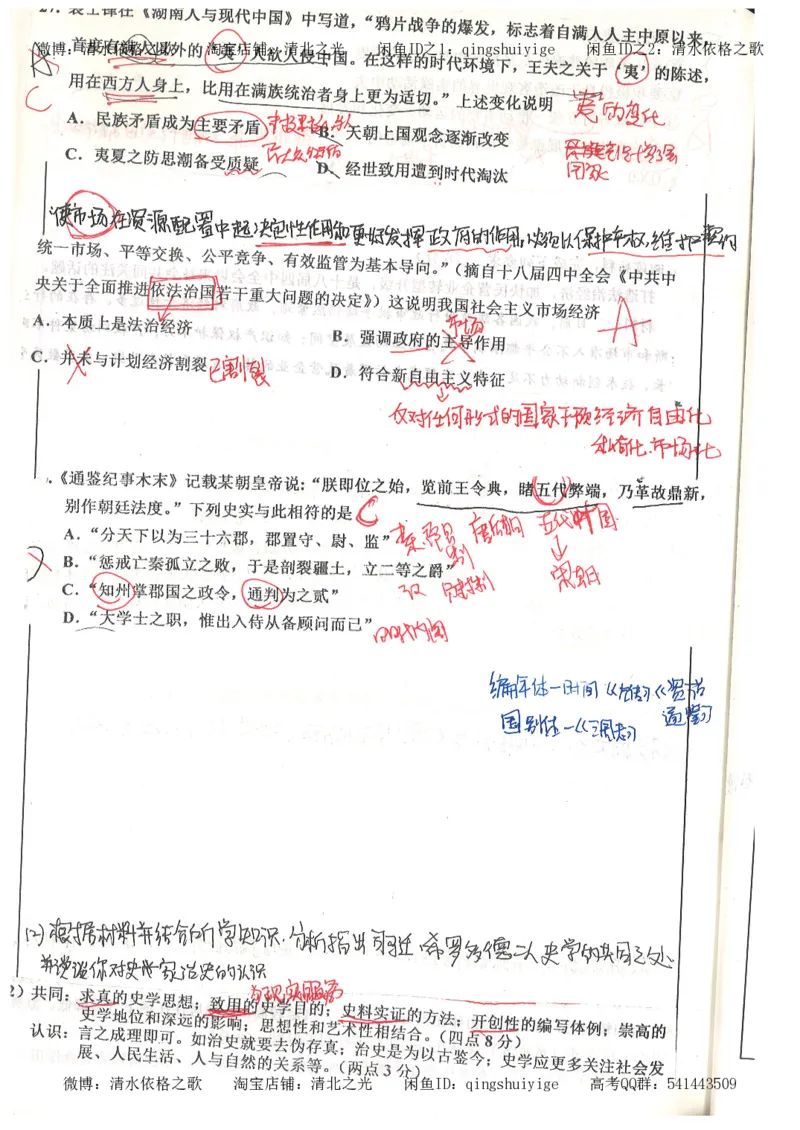 27. 裴士锋在《湖南人与现代中国》中写道，“鸦片战争的爆发，标志着自满人入主中原以来，
微博：清水依格之歌 淘宝店铺：清北之光 闲鱼ID之1：qingshuiyige 闲鱼ID之2：清水依格之歌
首度有满人以外的‘夷’人欲入侵中国。在这样的时代环境下，王夫之关于‘夷’的陈述，
用在西方人身上，比用在满族统治者身上更为适切。”上述变化说明
夷的变化
A．民族矛盾成为主要矛盾
B．天朝上国观念逐渐改变
C．夷夏之防思潮备受质疑
D．经世致用遭到时代淘汰
使市场在资源配置中起决定性作用和更好发挥政府的作用，必须以保护产权，维护契约
统一市场、平等交换、公平竞争、有效监管为基本导向。”（摘自十八届四中全会《中共中
央关于全面推进依法治国若干重大问题的决定》）这说明我国社会主义市场经济
A．本质上是法治经济
市场
B．强调政府的主导作用
C．并未与计划经济割裂
已割裂
D．符合新自由主义特征
反对任何形式的国家干预经济 自由化
私有化 市场化
《通鉴纪事木末》记载某朝皇帝说：“朕即位之始，览前王令典，睹五代弊端，乃革故鼎新，
别作朝廷法度。”下列史实与此相符的是
C
A．“分天下以为三十六郡，郡置守、尉、监”
五代十国
B．“惩戒亡秦孤立之败，于是剖裂疆土，立二等之爵”
宋朝
C．“知州掌郡国之政令，通判为之贰”
D．“大学士之职，惟出入侍从备顾问而已”
明代内阁
编年体—时间《左传》《资治
通鉴》
国别体—《三国志》
(2)根据材料并结合所学知识，分析指出司迁、希罗多德二人史学的共同之处
并谈谈你对史学家治史的认识
为现实服务
2）共同：求真的史学思想；致用的史学目的；史料实证的方法；开创性的编写体例；崇高的
史学地位和深远的影响；思想性和艺术性相结合。（四点8分）
认识：言之成理即可。如治史就要去伪存真；治史是为以古鉴今；史学应更多关注社会发
展、人民生活、人与自然的关系等。（两点3分）
微博：清水依格之歌 淘宝店铺：清北之光 闲鱼ID：qingshuiyige 高考QQ群：541443509